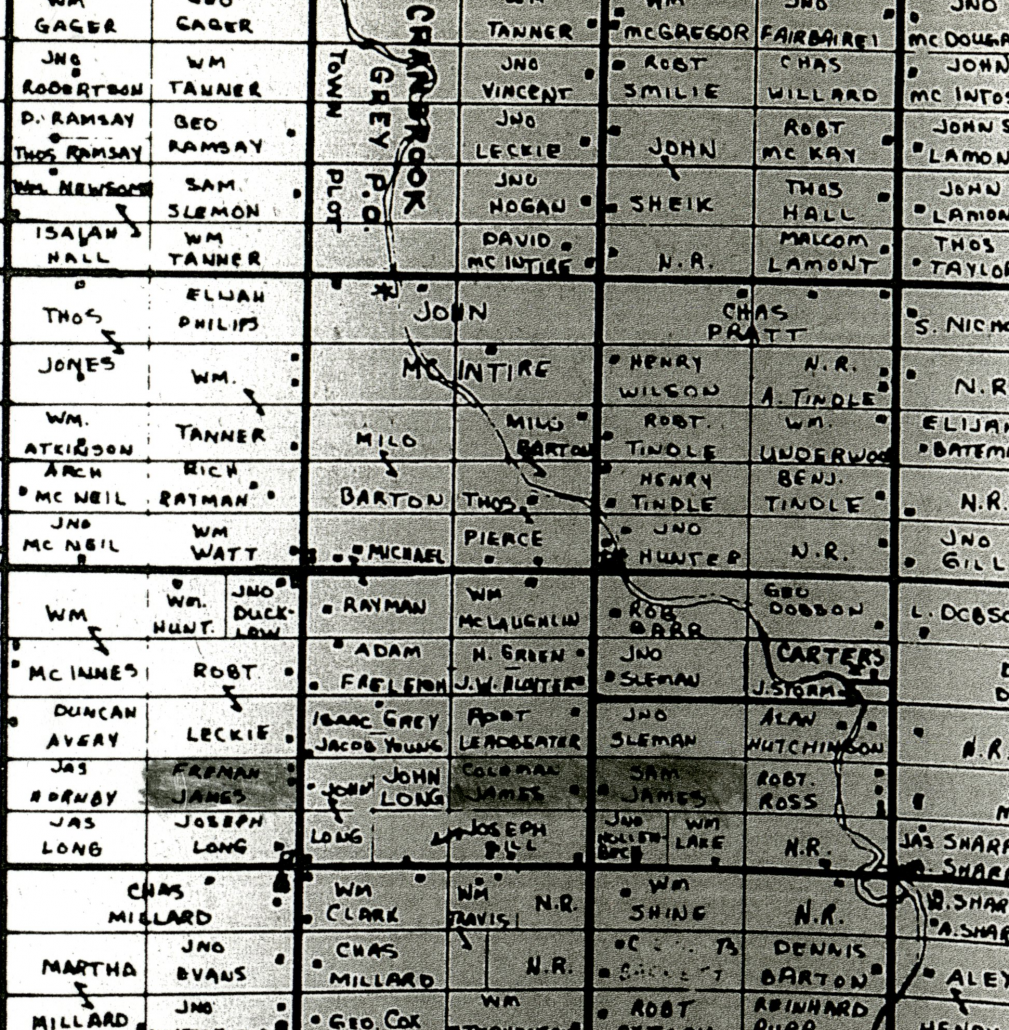 WM
GAGER
GEO
GAGER
CRANBROOK
GREY P.O.
TOWN PLOT
WM
TANNER
WM
McGREGOR
JNO
JNO
JNO
ROBERTSON
WM
TANNER
JNO
VINCENT
ROBT
SMILIE
CHAS
WILLARD
JOHN
D. RAMSAY
THOS RAMSAY
GEO
RAMSAY
JNO
LECKIE
JOHN
SHEIK
ROBT
MC KAY
JOHN S
LAMON
WM. NEWSOME
SAM.
SLEMON
JNO
HOGAN
THOS
HALL
JOHN
LAMON
ISAIAH
HALL
WM
TANNER
DAVID
MC INTIRE
N.R.
MALCOM
LAMONT
THOS
TAYLOR
THOS
JONES
ELIJAH
PHILIPS
JOHN
MC INTIRE
CHAS
PRATT
S. NICH
WM.
TANNER
HENRY
WILSON
N.R.
A. TINDLE
N.R
WM.
ATKINSON
MILO
BARTON
MILO
BARTON
ROBT.
TINDLE
WM.
UNDERWOO
ELIJAH
BATEM
ARCH
MC NEIL
RICH
RAYMAN
THOS
PIERCE
HENRY
TINDLE
BENJ.
TINDLE
N.R.
JNO
MC NEIL
WM
WATT
MICHAEL
RAYMAN
JNO
HUNTER
N.R.
JNO
GILL
WM
MC INNES
WM.
HUNT.
JNO
DUCK-
LOW
WM
McLAUGHLIN
ROB
BARR
GEO
DOBSON
L. DOBSO
ROBT.
LECKIE
ADAM
FRELEIGH
H. GREEN
J.W. HUNTER
JNO
SLEMAN
CARTERS
J. STORM
DUNCAN
AVERY
ISAAC GREY
JACOB YOUNG
ROBT
LEADBEATER
JNO
SLEMAN
ALAN
HUTCHINSON
N.R
JAS
HORNBY
FREMAN
JAMES
JOHN
LONG
JOHN
LONG
COLEMAN
JAMES
SAM
JAMES
ROBT.
ROSS
JAS
LONG
JOSEPH
LONG
JOSEPH
PILL
JNO
HOLLEN-
BECK
WM
LAKE
N.R.
JAS SHARP
SHARP
CHAS
MILLARD
WM
CLARK
WM
TRAVIS
N.R.
WM
SHINE
N.R.
SHAR
A. SHAR
MARTHA
MILLARD
JNO
EVANS
CHAS
MILLARD
N.R.
DENNIS
BARTON
ALEX
JNO
GEO. COX
WM
ROBT
REINHARD